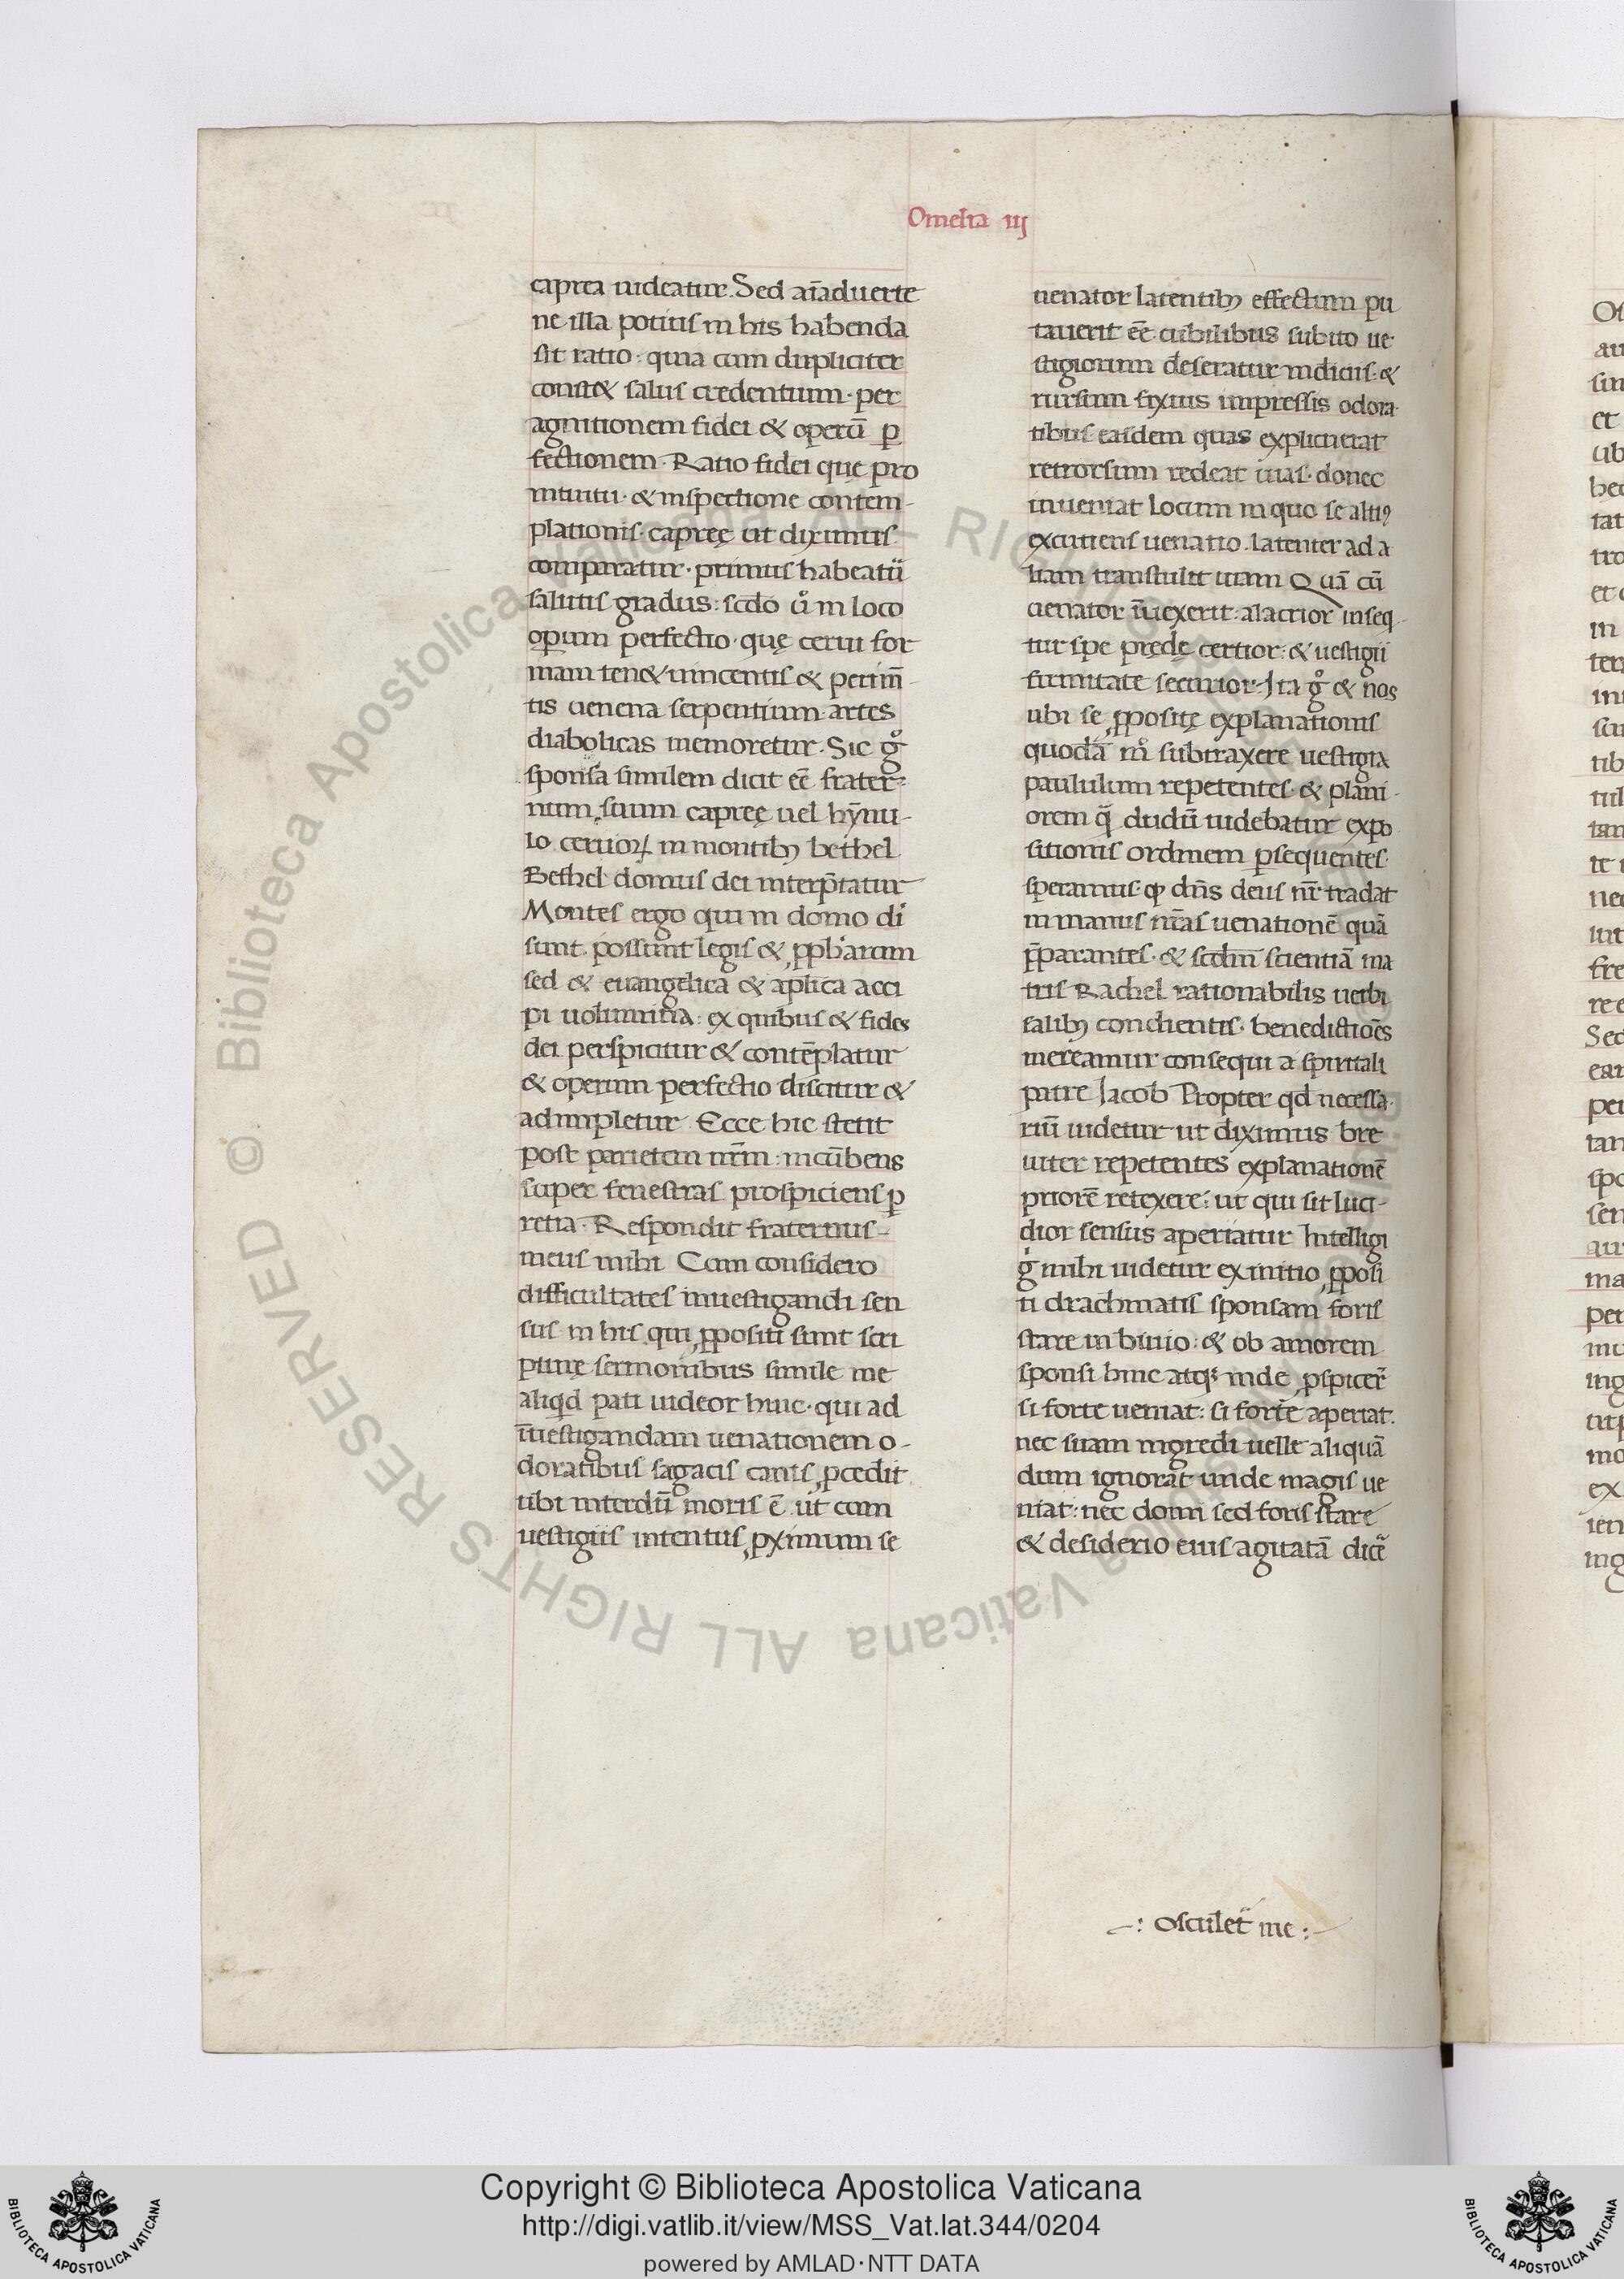 Omelia iij
caprea uideatur. Sed aīaduerte
ne illa potius in his habenda
sit ratio: quia cum dupliciter
const& salus credentium · per
agnitionem fidei & operū ꝑ
fectionem · Ratio fidei quę pro
intuitu · & inspectione contem-
plationis · capreę ut diximus
comparatur · primus habeatū
salutis gradus: scdo ů in loco
oꝑum perfectio · quę cerui for
mam ten& uincentis & perim̄-
tis uenena serpentium · artes
diabolicas memoretur · Sic gͦ
sponsa similem dicit eē frater-
num suum capreę uel hẏnu-
lo ceruoꝝ in montibꝫ bethel
Bethel domus dei interp̄tatur
Montes ergo qui in domo di
sunt possunt legis & ꝓph̄arum
sed & euangelica & aplica acci
pi uolumina: ex quibus & fides
dei perspicitur & contēplatur
& operum perfectio discitur &
adimpletur Ecce hic stetit
post parietem nr̄m: incūbens
super fenestras prospiciens ꝑ
retia · Respondit fraternus-
meus mihi Cum considero
difficultates inuestigandi sen
sus in his qui ꝓpositi sunt scri
pturę sermonibus simile me
aliqd pati uideor huic · qui ad
īuestigandam uenationem o-
doratibus sagacis canis ꝓcedit
ubi interdū moris ē ut cum
uestigiis intentus ꝓximum se
uenator latentibꝫ effectum pu
tauerit eē cubilibus subito ue-
stigiorum deseratur indiciis: &
rursum fixius impressis odora-
tibus easdem quas explicuerat
retrorsum redeat uias · donec
inueniat locum in quo se altiꝰ
excutiens uenatio · latenter ad a
liam transtulit uiam Quā cū
uenator īuexerit: alacrior inseq-
tur spe prędę certior: & uestigii
firmitate securior · Ita gͦ & nos
ubi se ꝓpositę explanationis
quodā mͦ subtraxere uestigia
paululum repetentes · & plani-
orem q̄ dudū uidebatur expo
sitionis ordinem ꝑsequentes ·
speramus · ꝙ dn̄s deus nr̄ tradat
in manus nr̄as uenationē quā
p̄parantes · & scdm̄ scientiā ma
tris Rachel rationabilis uerbi
salibꝫ condientis · benedictiōes
mereamur consequi a spiritali
patre Jacob Propter qd necessa-
riū uidetur ut diximus bre
uiter repetentes explanationē
priorē retexere: ut qui sit luci-
dior sensus aperiatur Intelligi
g̊ mihi uidetur ex initio ꝓposi
ti drachmatis sponsam foris
stare in biuio: & ob amorem
sponsi hinc atqꝫ inde ꝓspicer̄
si forte ueniat: si forte aperiat.
nec suam ingredi uelle aliquā
dum ignorat unde magis ue
niat: nec domi sed foris stare
& desiderio eius agitatā dicē
-: osculet̄ me :-